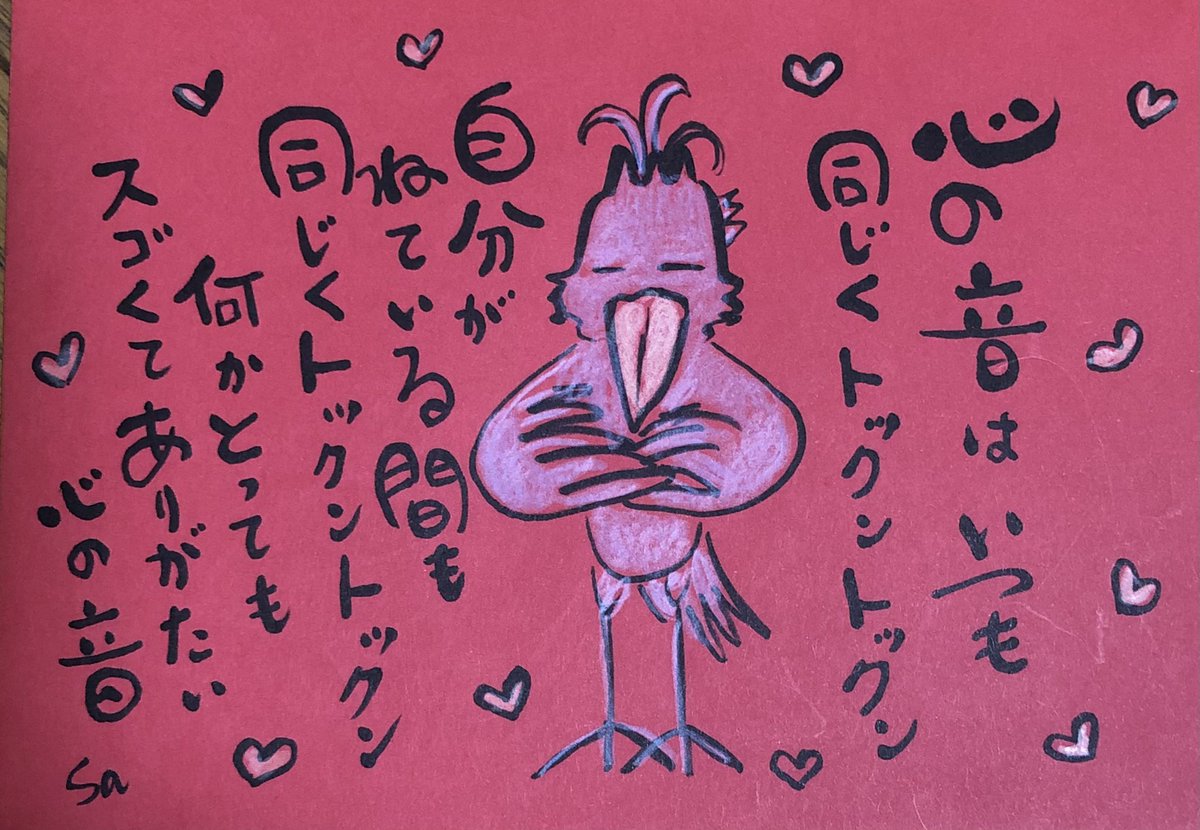 心の音はいつも
同じくトックントックン
自分が
ねている間も
同じくトックントックン
何かとっても
スゴくてありがたい
心の音
Sa